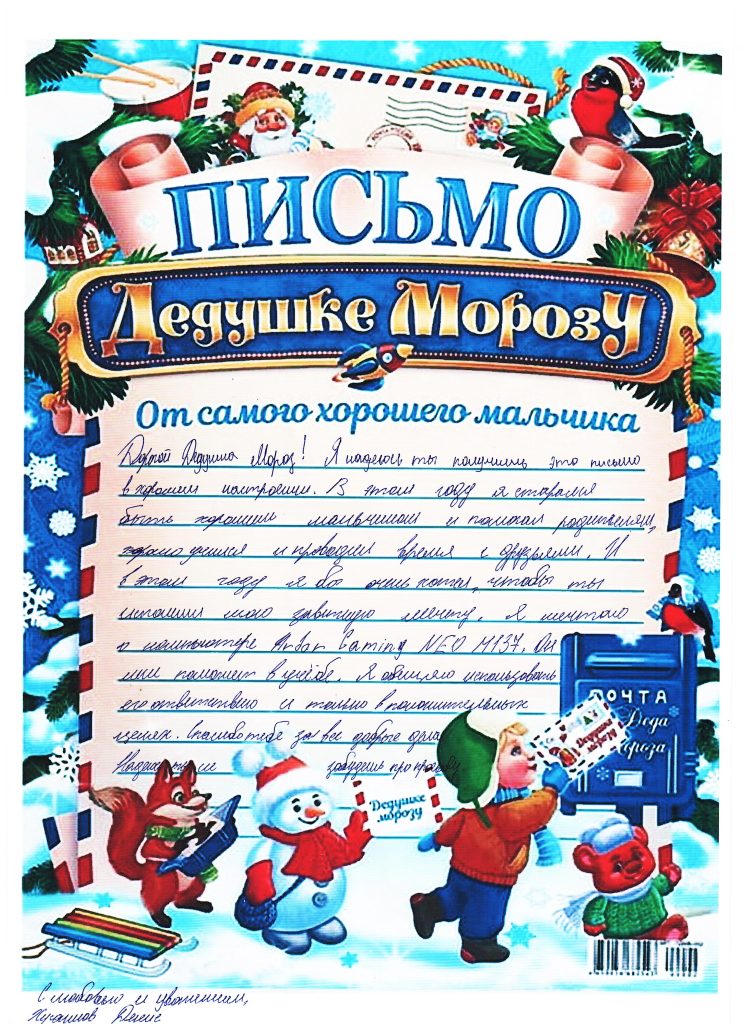 ПИСЬМО
Дедушке Морозу
От самого хорошего мальчика
Дорогой Дедушка Мороз! Я надеюсь ты получишь это письмо
в хорошем настроении. В этом году я старался
быть хорошим мальчиком и помогал родителям,
хорошо учился и проводил время с друзьями. И
в этом году я бы очень хотел, чтобы ты
исполнил мою заветную мечту. Я мечтаю
о компьютере Gaming NEO M137. Он
мне поможет в учёбе. Я обещаю использовать
его ответственно и только в положительных
целях. Спасибо тебе за все добрые
Надеюсь ты не забудешь про
ПОЧТА
Деда
Мороза
Дедушке
морозу
Дедушке
морозу
С любовью и уважением,
Денис